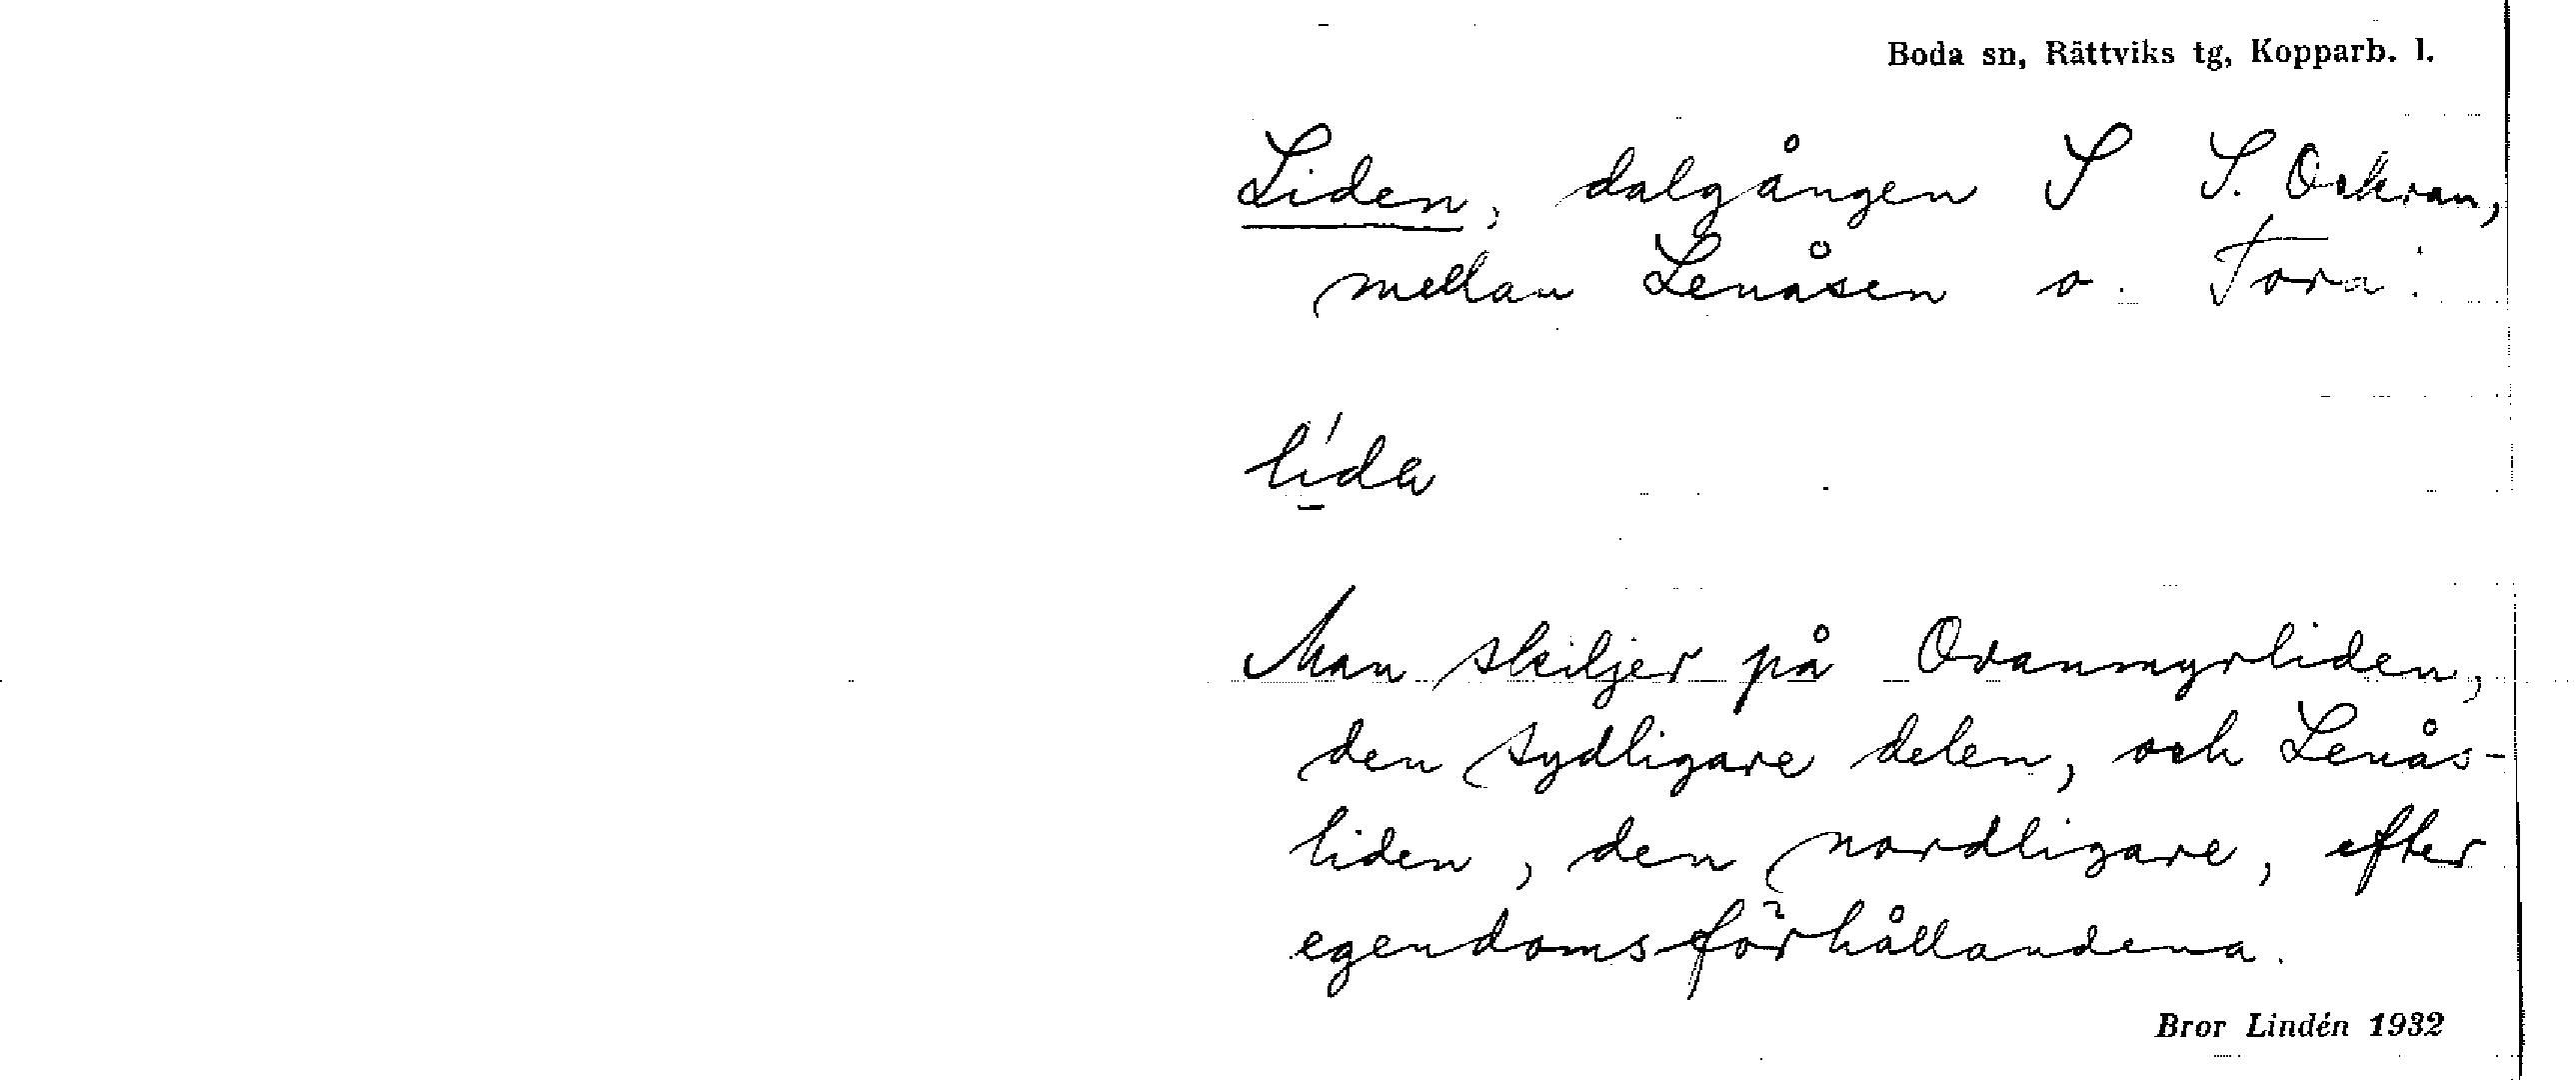 Boda sn, Rättviks tg, Kopparb. l.
Liden, dalgången S S. Ockran,
mellan Lenåsen o. Tora.
lída
Man skiljer på Ovanmyrliden,
den sydligare delen, och Lenås-
liden, den nordligare, efter
egendomsförhållandena.
Bror Lindén 1932